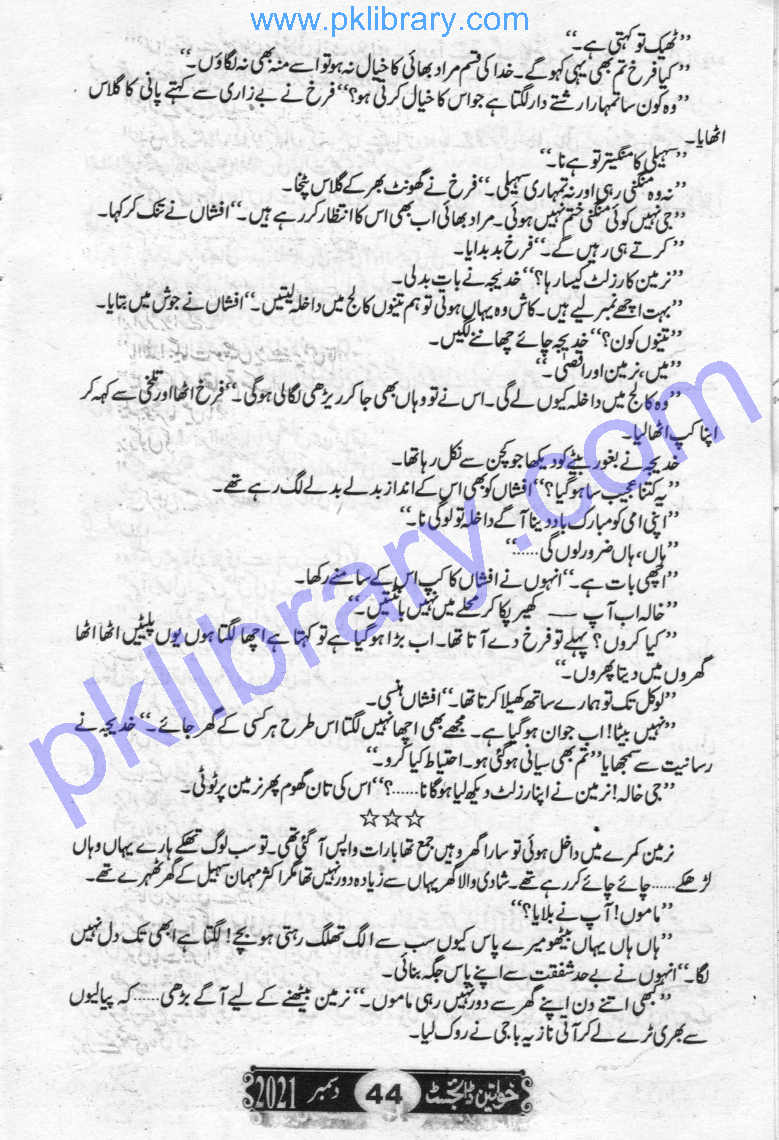 www.pklibrary.com
’’ٹھیک تو کہتی ہے۔‘‘
’’کیا فرخ تم بھی یہی کہو گے۔ خدا کی قسم مراد بھائی کا خیال نہ ہو تو اسے منہ بھی نہ لگاؤں۔‘‘
’’وہ کون سا تمہارا رشتے دار لگتا ہے جو اس کا خیال کرتی ہو؟‘‘ فرخ نے بے زاری سے کہتے پانی کا گلاس
اٹھایا۔
’’سہیلی کا منگیتر تو ہے نا۔‘‘
’’نہ وہ منگنی رہی اور نہ تمہاری سہیلی۔‘‘ فرخ نے گھونٹ بھر کے گلاس پٹخا۔
’’جی نہیں کوئی منگنی ختم نہیں ہوئی۔ مراد بھائی اب بھی اس کا انتظار کر رہے ہیں۔‘‘ افشاں نے تنک کر کہا۔
’’کرتے ہی رہیں گے۔‘‘ فرخ بدبدایا۔
’’نرمین کا رزلٹ کیسا رہا؟‘‘ خدیجہ نے بات بدلی۔
’’بہت اچھے نمبر لیے ہیں۔ کاش وہ یہاں ہوتی تو ہم تینوں کالج میں داخلہ لیتیں۔‘‘ افشاں نے جوش میں بتایا۔
’’تینوں کون؟‘‘ خدیجہ چائے چھاننے لگیں۔
’’میں، نرمین اور اقصٰی۔‘‘
’’وہ کالج میں داخلہ کیوں لے گی۔ اس نے تو وہاں بھی جا کر ریڑھی لگالی ہوگی۔‘‘ فرخ اٹھا اور تلخی سے کہہ کر
اپنا کپ اٹھا لیا۔
خدیجہ نے بغور بیٹے کو دیکھا جو کچن سے نکل رہا تھا۔
’’یہ کتنا عجیب سا ہوگیا؟‘‘ افشاں کو بھی اس کے انداز بدلے بدلے لگ رہے تھے۔
’’اپنی امی کو مبارک باد دینا آگے داخلہ تو لوگی نا۔‘‘
’’ہاں، ہاں ضرور لوں گی......‘‘
’’اچھی بات ہے۔‘‘ انہوں نے افشاں کا کپ اس کے سامنے رکھا۔
’’خالہ اب آپ — کھیر پکا کر محلے میں نہیں بانٹتیں۔‘‘
’’کیا کروں؟ پہلے تو فرخ دے آتا تھا۔ اب بڑا ہوگیا ہے تو کہتا ہے اچھا لگتا ہوں یوں پلیٹیں اٹھا اٹھا
گھروں میں دیتا پھروں۔‘‘
’’لوکل تک تو ہمارے ساتھ کھیلا کرتا تھا۔‘‘ افشاں ہنسی۔
’’نہیں بیٹا! اب جوان ہوگیا ہے۔ مجھے بھی اچھا نہیں لگتا اس طرح ہر کسی کے گھر جائے۔‘‘ خدیجہ نے
رسانیت سے سمجھایا ’’تم بھی سیانی ہوگئی ہو۔ احتیاط کیا کرو۔‘‘
’’جی خالہ! نرمین نے اپنا رزلٹ دیکھ لیا ہوگا نا......؟‘‘ اس کی تان گھوم پھر نرمین پر ٹوٹی۔
☆☆☆
نرمین کمرے میں داخل ہوئی تو سارا گھر وہیں جمع تھا بارات واپس آ گئی تھی۔ تو سب لوگ تھکے ہارے یہاں وہاں
لڑھکے...... چائے چائے کر رہے تھے۔ شادی والا گھر یہاں سے زیادہ دور نہیں تھا مگر اکثر مہمان سہیل کے گھر ٹھہرے تھے۔
’’ماموں! آپ نے بلایا؟‘‘
’’ہاں ہاں یہاں بیٹھو میرے پاس کیوں سب سے الگ تھلگ رہتی ہو بچے! لگتا ہے ابھی تک دل نہیں
لگا۔‘‘ انہوں نے بے حد شفقت سے اپنے پاس جگہ بنائی۔
’’کبھی اتنے دن اپنے گھر سے دور نہیں رہی ماموں۔‘‘ نرمین بیٹھنے کے لیے آگے بڑھی...... کہ پیالیوں
سے بھری ٹرے لے کر آتی نازیہ باجی نے روک لیا۔
خواتین ڈائجسٹ 44 دسمبر 2021
pklibrary.com